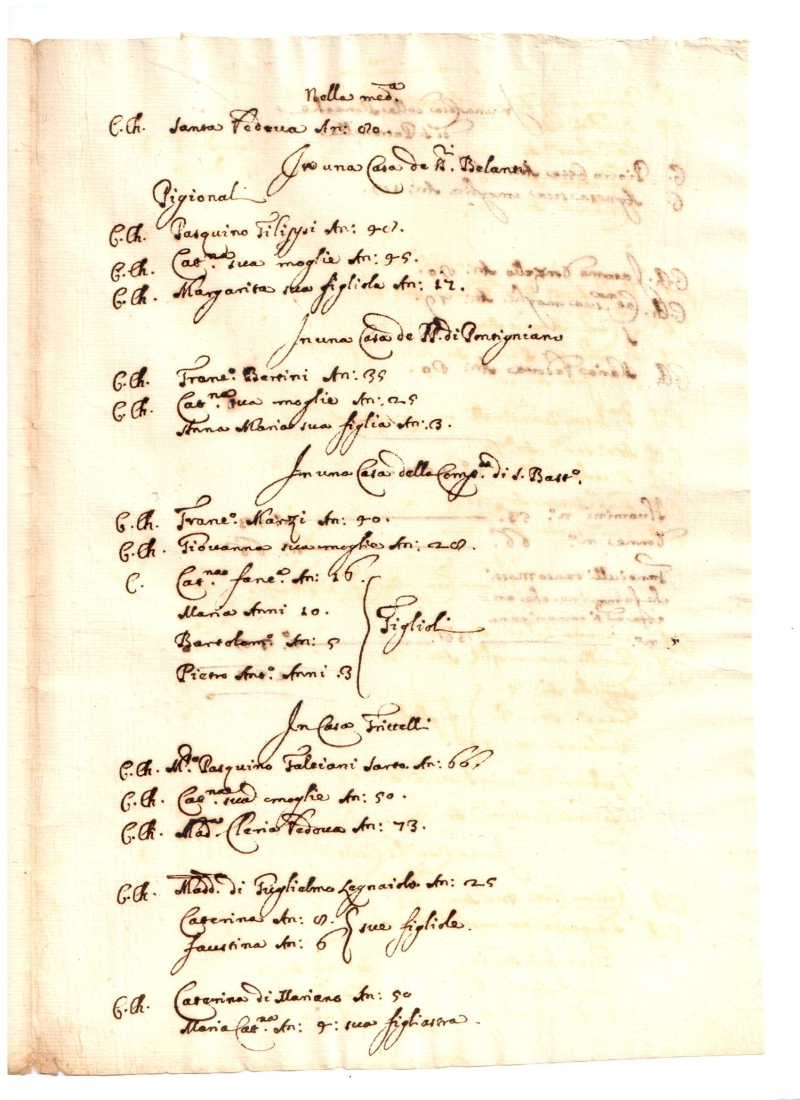 Nella med.ª
C. Ch. Santa Vedova An: 80.
In una Casa de SS.ri Belanti
Pigionali
C. Ch. Pasquino Filippi An: 48.
C. Ch. Cat.na sua moglie An: 45.
C. Ch. Margarita sua figliola An: 17.
In una Casa de PP. di Pontigniano
C. Ch. Franc.º Bertini An: 35
C. Ch. Cat.na sua moglie An: 25
Anna Maria sua figlia An: 3.
In una Casa della Comp.ª di S. Bast.º
C. Ch. Franc.º Marzi An: 40.
C. Ch. Giovanna sua moglie An: 28.
C. Cat.na An: 16.
Maria Anni 10.
Bartolom.º An: 5
Pietro Ant.º Anni 3
Figlioli
In Casa Frittelli
C. Ch. M.º Pasquino Falciani Sarto An: 66
C. Ch. Cat.na sua moglie An: 50.
C. Ch. Mad.ª Cleria Vedova An: 73.
C. Ch. Madd.ª di Guglielmo Legnaiolo An: 25
Caterina An: 8.
Faustina An: 6
sue figliole.
C. Ch. Caterina di Mariano An: 50
Maria Cat.na An: 9: sua figliastra.